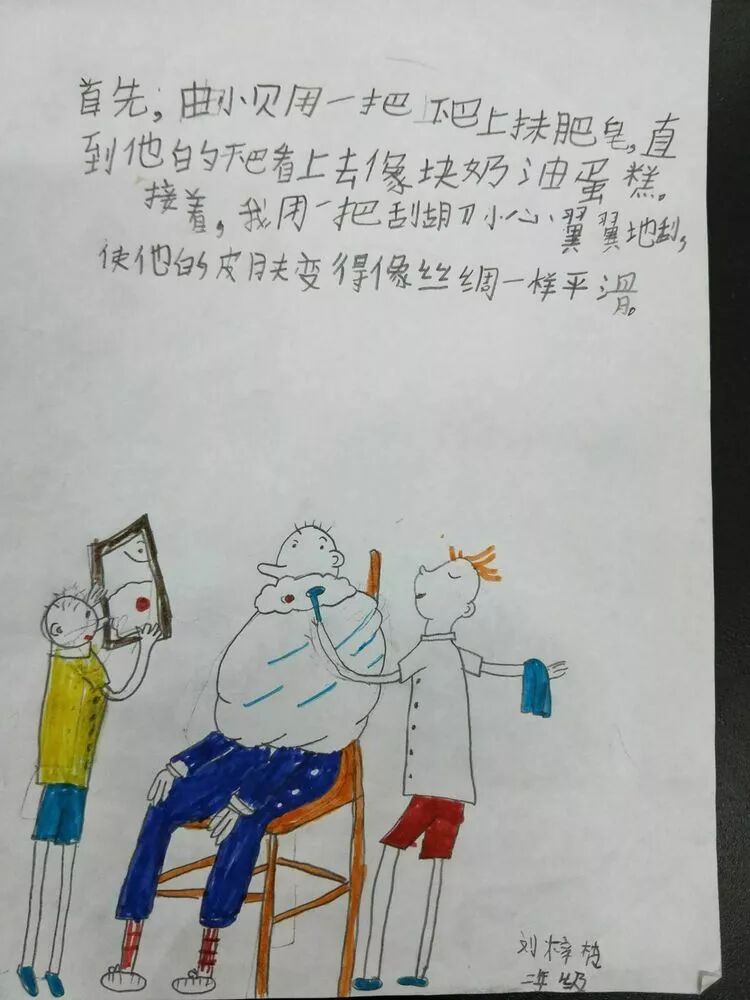 首先,由小贝用一把下巴上抹肥皂,直
到他的下巴看上去像块奶油蛋糕。
接着,我用一把刮胡刀小心翼翼地刮,
使他的皮肤变得像丝绸一样平滑。
刘梓
二年级